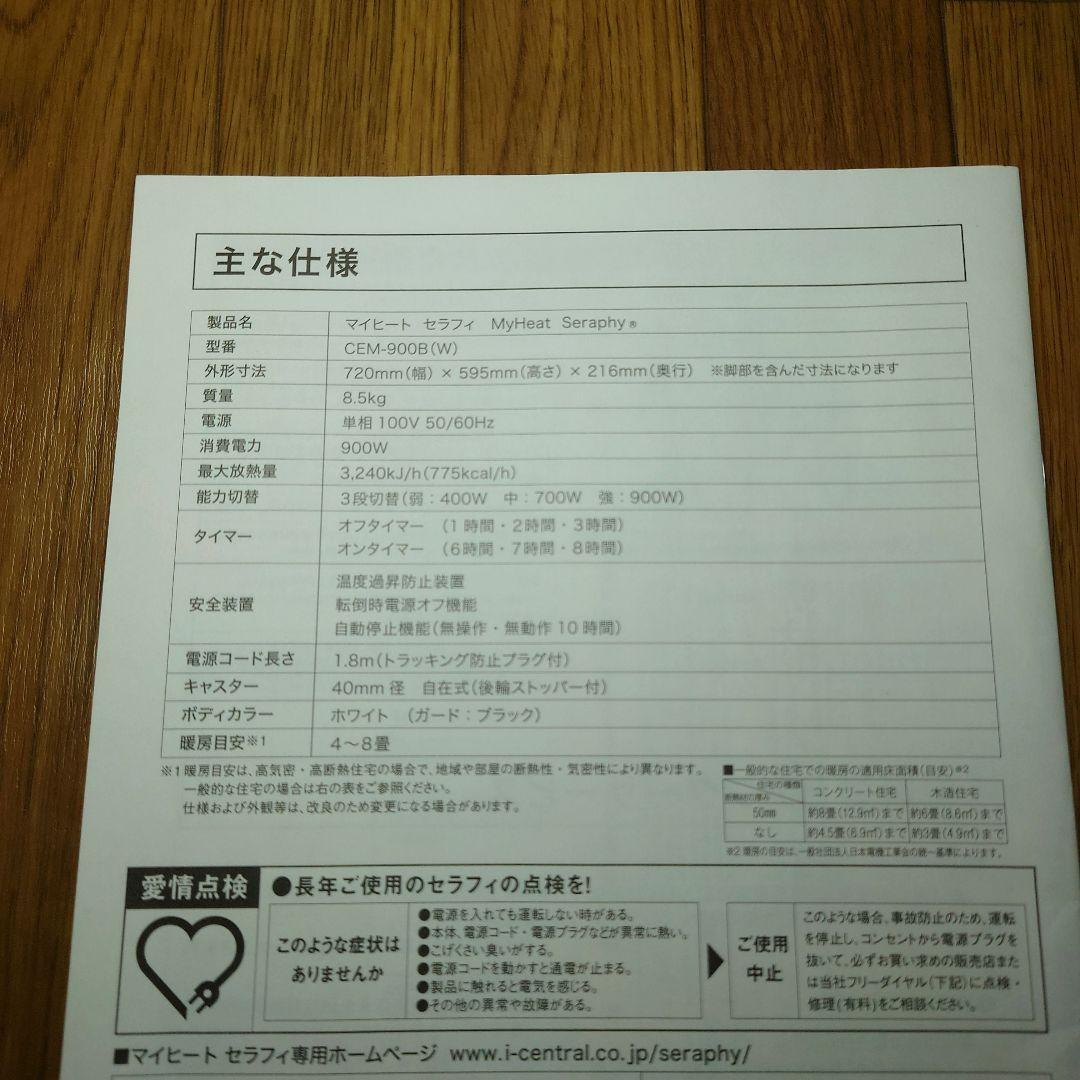 主な仕様
製品名 マイヒート セラフィ MyHeat Seraphy®
型番 CEM-900B(W)
外形寸法 720mm(幅) × 595mm(高さ) × 216mm(奥行) ※脚部を含んだ寸法になります
質量 8.5kg
電源 単相100V 50/60Hz
消費電力 900W
最大放熱量 3,240kJ/h(775kcal/h)
能力切替 3段切替(弱：400W 中：700W 強：900W)
タイマー オフタイマー (1時間・2時間・3時間)
オンタイマー (6時間・7時間・8時間)
安全装置 温度過昇防止装置
転倒時電源オフ機能
自動停止機能(無操作・無動作10時間)
電源コード長さ 1.8m(トラッキング防止プラグ付)
キャスター 40mm径 自在式(後輪ストッパー付)
ボディカラー ホワイト (ガード：ブラック)
暖房目安※1 4～8畳
※1 暖房目安は、高気密・高断熱住宅の場合で、地域や部屋の断熱性・気密性により異なります。
一般的な住宅の場合は右の表をご参照ください。
仕様および外観等は、改良のため変更になる場合があります。
■一般的な住宅での暖房の適用床面積(目安)※2
住宅の種類 断熱材の厚み コンクリート住宅 木造住宅
50mm 約8畳(12.9㎡)まで 約6畳(8.6㎡)まで
なし 約4.5畳(6.9㎡)まで 約3畳(4.9㎡)まで
※2 暖房の目安は、一般社団法人日本電機工業会の統一基準によります。
愛情点検 ●長年ご使用のセラフィの点検を!
このような症状は
ありませんか
●電源を入れても運転しない時がある。
●本体、電源コード・電源プラグなどが異常に熱い。
●こげくさい臭いがする。
●電源コードを動かすと通電が止まる。
●製品に触れると電気を感じる。
●その他の異常や故障がある。
ご使用
中止
このような場合、事故防止のため、運転
を停止し、コンセントから電源プラグを
抜いて、必ずお買い求めの販売店また
は当社フリーダイヤル(下記)に点検・
修理(有料)をご相談ください。
■マイヒート セラフィ専用ホームページ www.i-central.co.jp/seraphy/